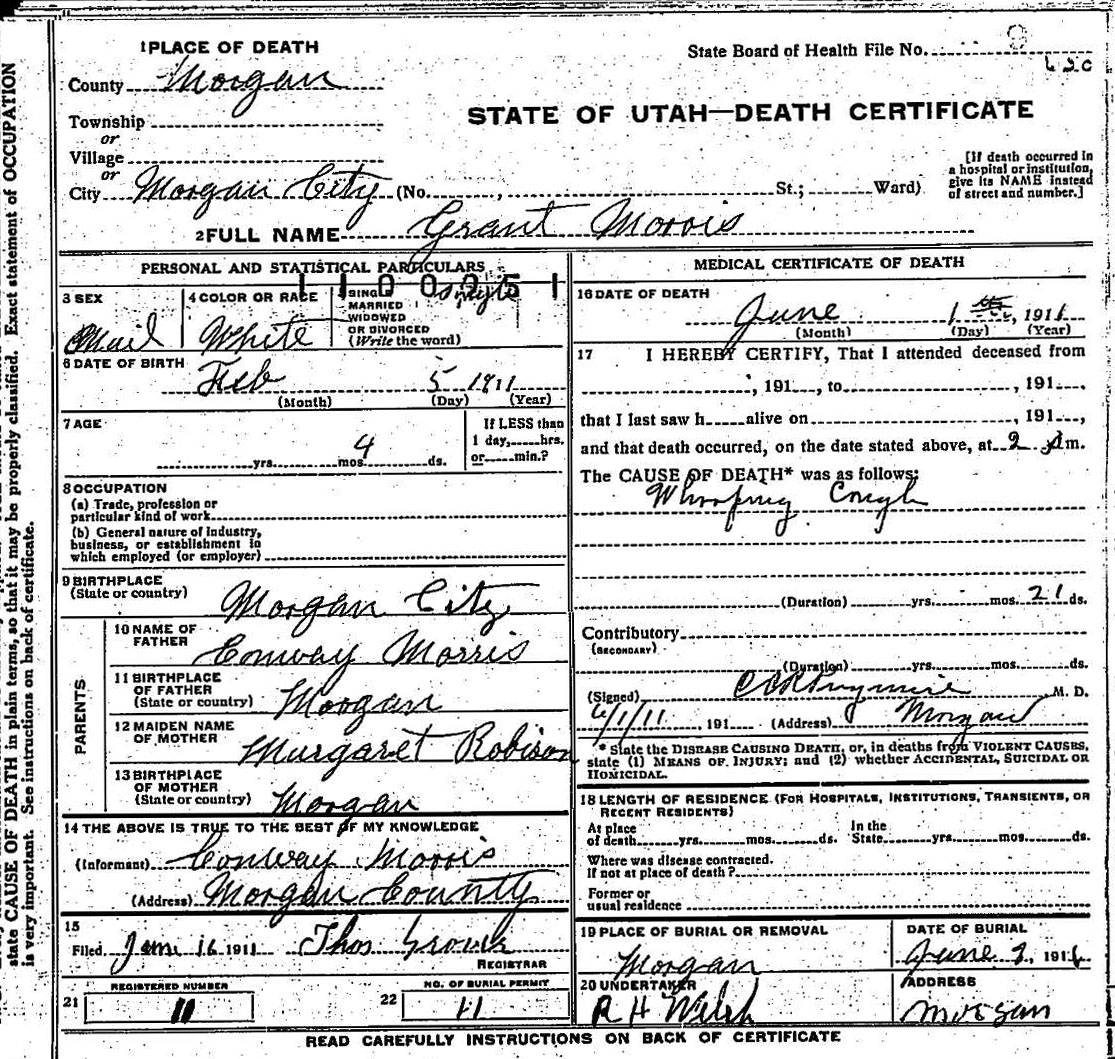 state CAUSE OF DEATH in plain terms, so that it may be properly classified. Exact statement of OCCUPATION
is very important. See instructions on back of certificate.
1 PLACE OF DEATH
State Board of Health File No.
County Morgan
STATE OF UTAH—DEATH CERTIFICATE
Township
or
Village
or
City Morgan City (No. , St.; Ward)
[If death occurred in
a hospital or institution,
give its NAME instead
of street and number.]
2 FULL NAME Grant Morris
PERSONAL AND STATISTICAL PARTICULARS
1100251
3 SEX
Mail
4 COLOR OR RACE
White
SINGLE
MARRIED
WIDOWED
OR DIVORCED
(Write the word)
Single
6 DATE OF BIRTH
Feb 5 1911
(Month) (Day) (Year)
7 AGE
yrs. 4 mos. ds.
If LESS than
1 day, hrs.
or min.?
8 OCCUPATION
(a) Trade, profession or
particular kind of work
(b) General nature of industry,
business, or establishment in
which employed (or employer)
9 BIRTHPLACE
(State or country)
Morgan City
PARENTS
10 NAME OF
FATHER
Conway Morris
11 BIRTHPLACE
OF FATHER
(State or country)
Morgan
12 MAIDEN NAME
OF MOTHER
Murgaret Robison
13 BIRTHPLACE
OF MOTHER
(State or country)
Morgan
14 THE ABOVE IS TRUE TO THE BEST OF MY KNOWLEDGE
(Informant) Conway Morris
(Address) Morgan County
15
Filed June 16 1911 Thos Grover
REGISTRAR
21
REGISTERED NUMBER
11
22
NO. OF BURIAL PERMIT
11
MEDICAL CERTIFICATE OF DEATH
16 DATE OF DEATH
June 1 , 1911
(Month) (Day) (Year)
17 I HEREBY CERTIFY, That I attended deceased from
, 191 , to , 191 ,
that I last saw h alive on , 191 ,
and that death occurred, on the date stated above, at 2 m.
The CAUSE OF DEATH* was as follows:
Whooping Cough
(Duration) yrs. mos. 21 ds.
Contributory
(SECONDARY)
(Duration) yrs. mos. ds.
(Signed) M. D.
6/1/11 , 191 (Address) Morgan
* State the DISEASE CAUSING DEATH, or, in deaths from VIOLENT CAUSES,
state (1) MEANS OF INJURY; and (2) whether ACCIDENTAL, SUICIDAL OR
HOMICIDAL.
18 LENGTH OF RESIDENCE (FOR HOSPITALS, INSTITUTIONS, TRANSIENTS, OR
RECENT RESIDENTS)
At place
of death yrs. mos. ds.
In the
State yrs. mos. ds.
Where was disease contracted.
If not at place of death?
Former or
usual residence
19 PLACE OF BURIAL OR REMOVAL
Morgan
DATE OF BURIAL
June 2, 1911
20 UNDERTAKER
R H Welsh
ADDRESS
Morgan
READ CAREFULLY INSTRUCTIONS ON BACK OF CERTIFICATE